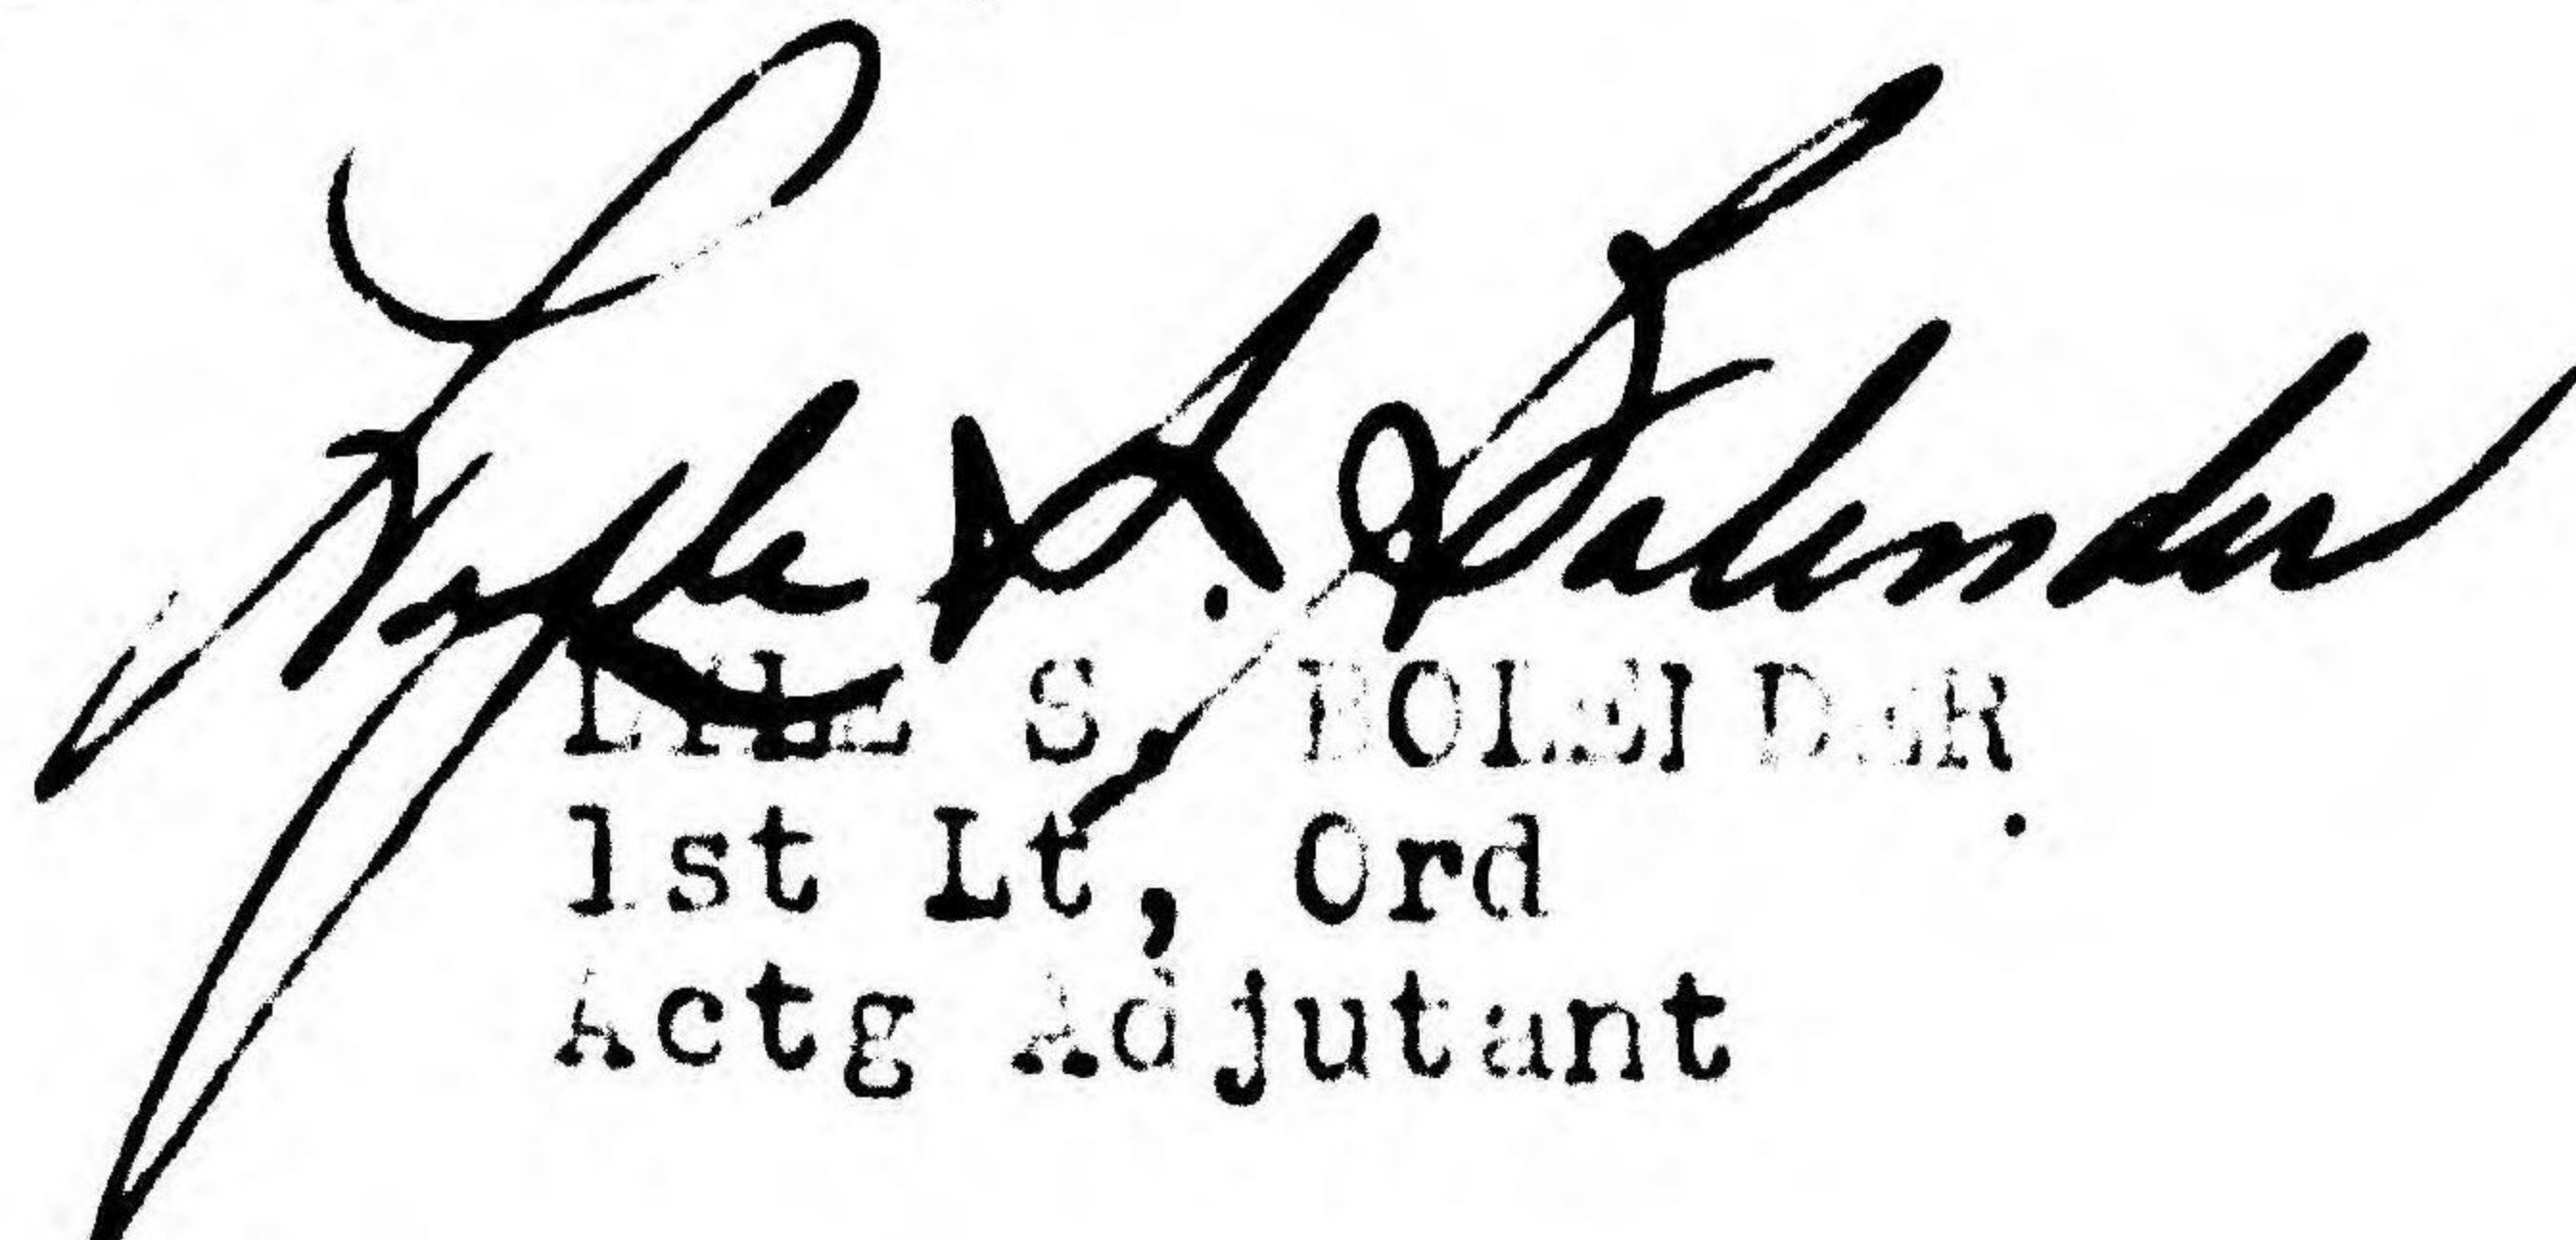 Lyle S. Bolender
LYLE S. BOLENDER
1st Lt, Ord
Actg Adjutant